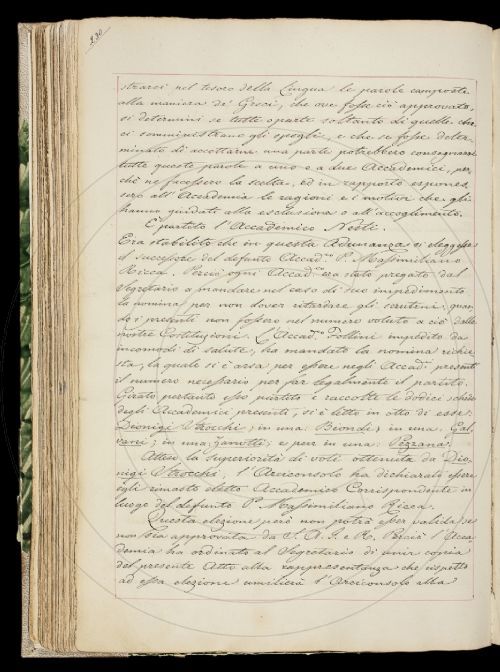 230
strarsi nel tesoro della Lingua le parole composte
alla maniera de' Greci, che ove fosse ciò approvato,
si determini se tutte o parte soltanto di quelle che
ci somministrano gli spogli, e che se fosse deter
minato di accettarne una parte potrebbero consegnarsi
tutte queste parole a uno e a due Accademici, per
chè ne facessero la scelta, ed in rapporto esponес
sero all'Accademia le ragioni e i motivi che gli
hanno guidati alla esclusione o all'accoglimento.
È partito l'Accademico Nesti.
Era stabilito che in questa Adunanza si eleggesse
il successore del defunto Accad.co P. Massimiliano
Ricca. Perciò ogni Accad.co era stato pregato dal
Segretario a mandare nel caso di suo impedimento
la nomina per non dover ritardare gli scrutini, quan
do i presenti non fossero nel numero voluto a ciò dalle
nostre Costituzioni. L'Accad. Follini impedito da
incomodi di salute, ha mandato la nomina richie
sta, la quale si è arsa per essere negli Accad.ci presenti
il numero necessario per far legalmente il partito.
Girato pertanto esso partito e raccolte le dodici schede
degli Accademici presenti, si è letto in otto di esse:
Dionigi Strocchi, in una: Biondi, in una: Gal-
vani, in una Zanotti; e pur in una: Pezzana.
Attesa la superiorità di voti ottenuta da Dio-
nigi Strocchi, l'Arciconsolo ha dichiarato essere
egli rimasto eletto Accademico Corrispondente in
luogo del defunto P. Massimiliano Ricca.
Questa elezione però non potrà esser valida se
non sia approvata da S. A. I. e R. Perciò l'Acca
demia ha ordinato al Segretario di unir copia
del presente Atto alla rappresentanza che rispetto
ad essa elezione umilierà l'Arciconsolo alla